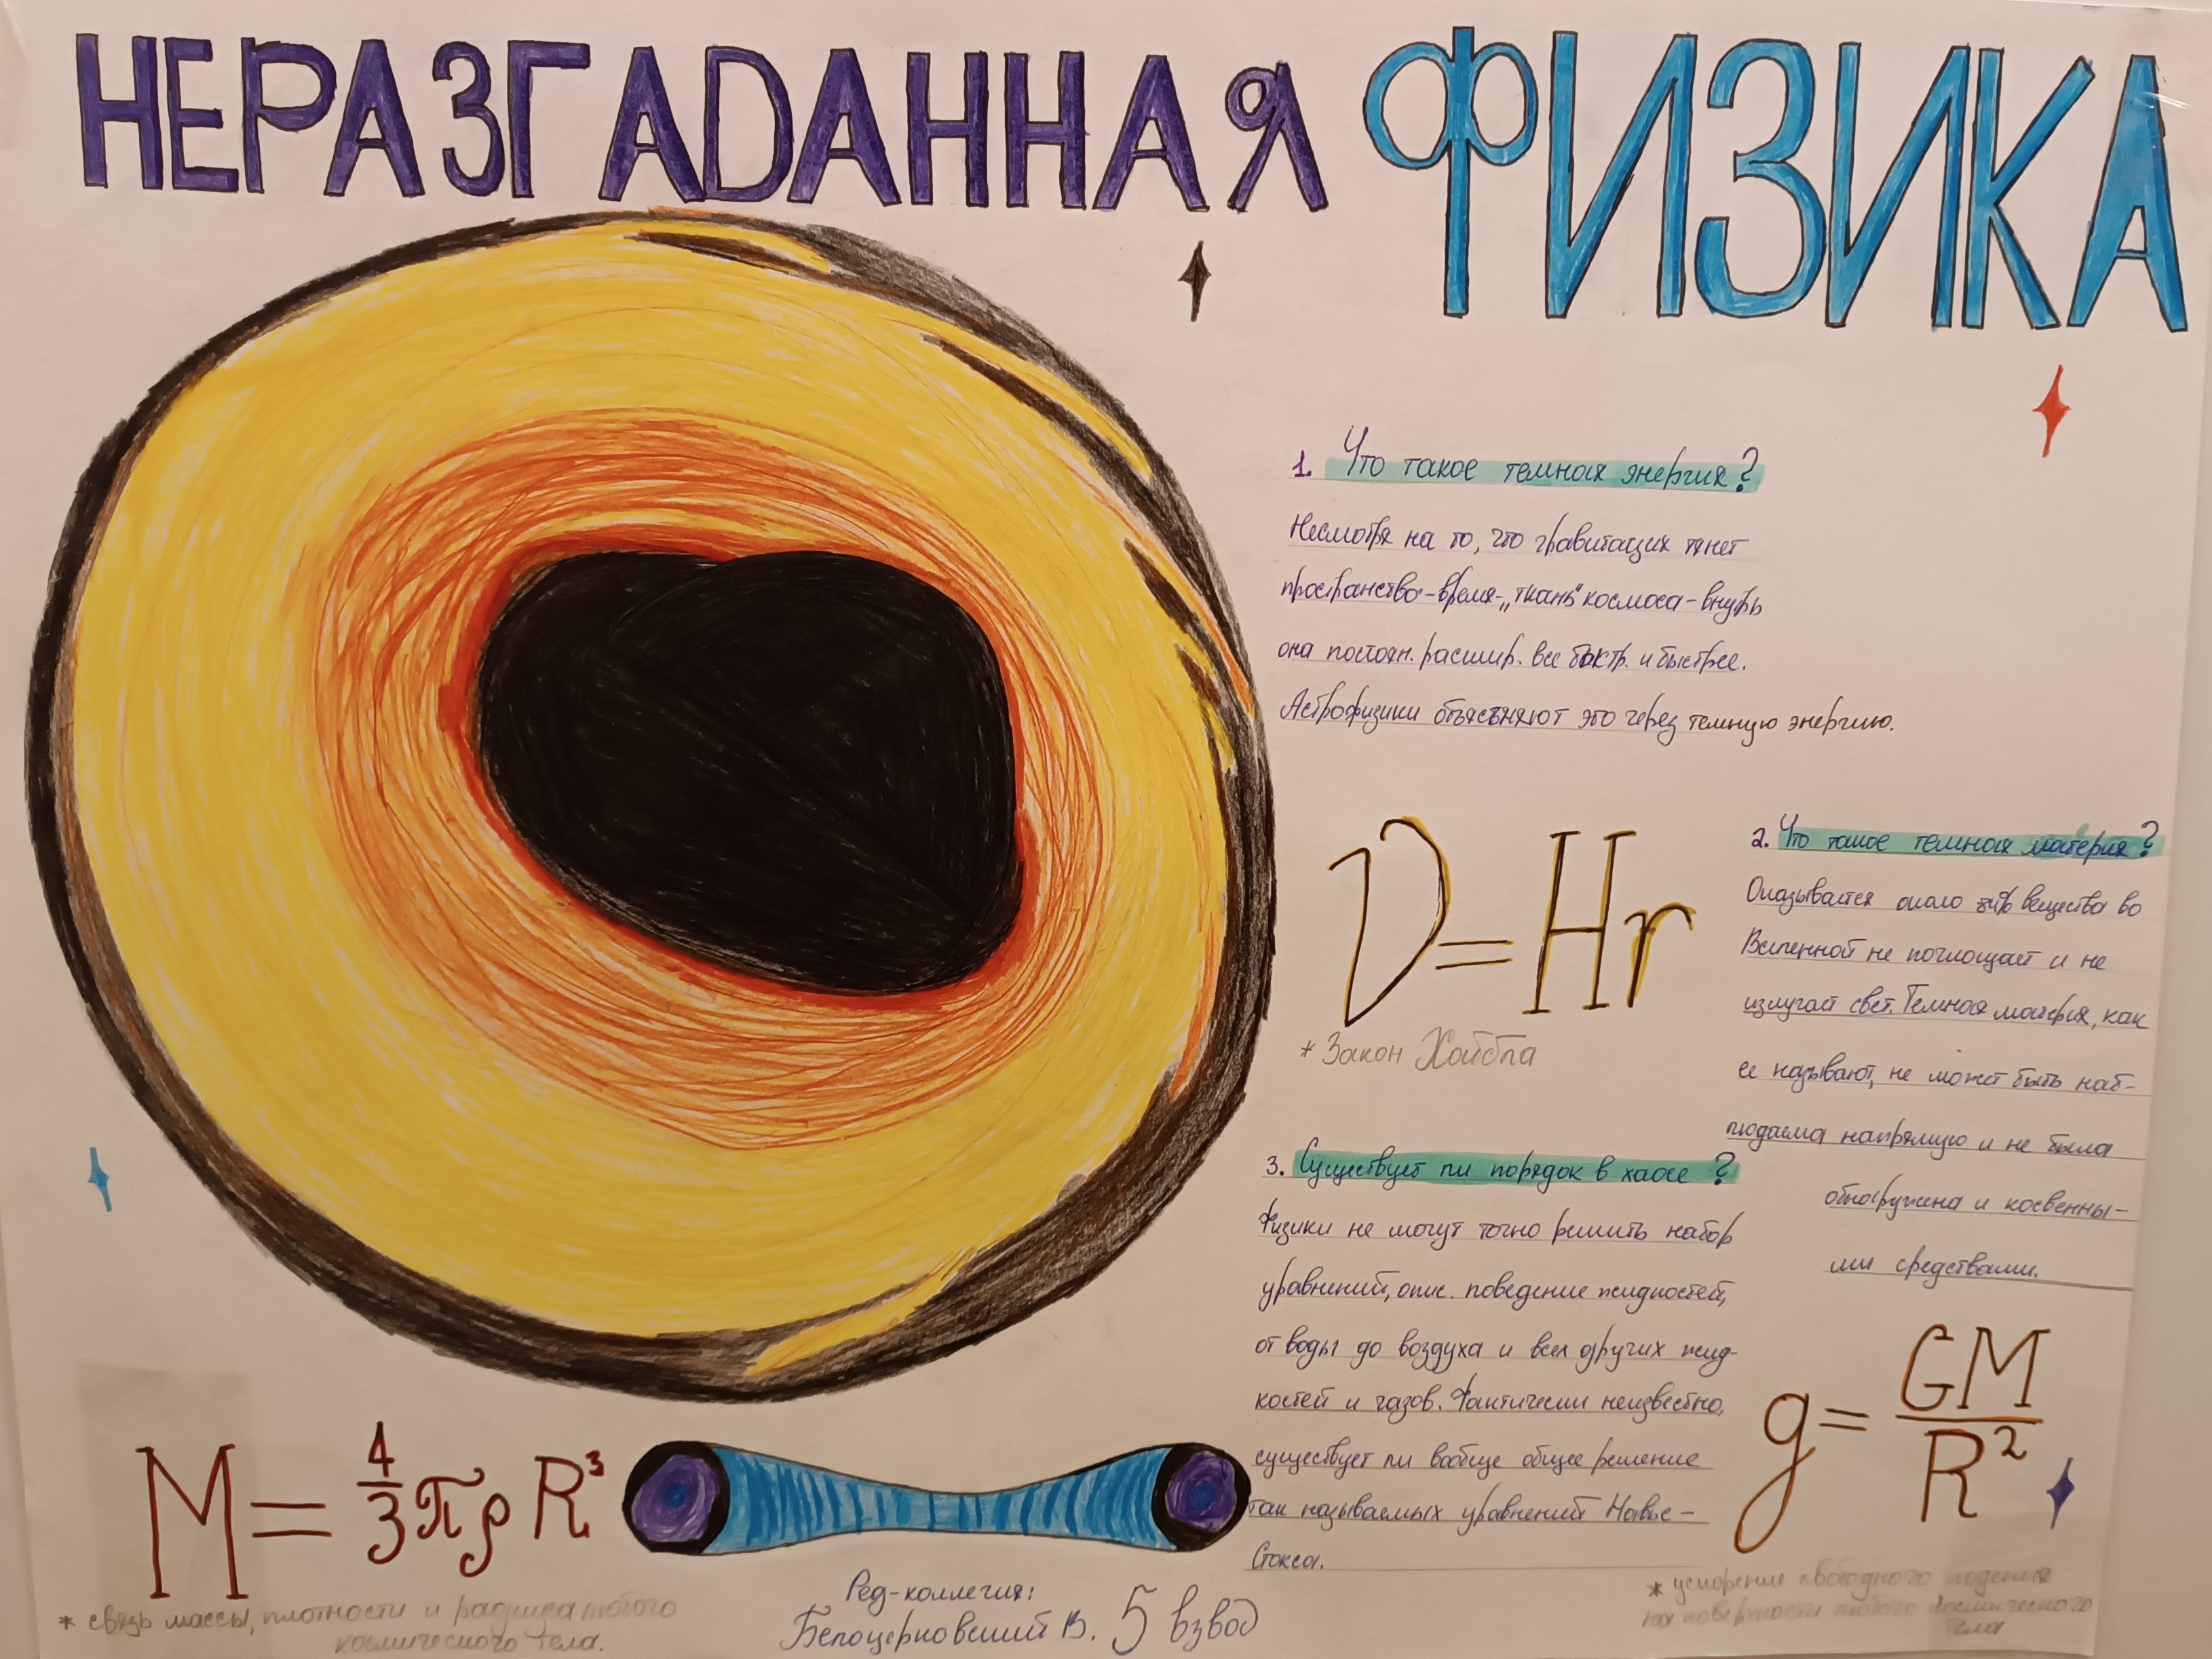 НЕРАЗГАДАННАЯ ФИЗИКА
1. Что такое темная энергия?
Несмотря на то, что гравитация тянет
пространство-время-„ткань" космоса-внутрь
она постоян. расшир. все быстр. и быстрее.
Астрофизики объясьняют это через темную энергию.
V=Hr
* Закон Хаббла
2. Что такое темная материя?
Оказывается около 84% вещества во
Вселенной не поглощает и не
излучает свет. Темная материя, как
ее называют, не может быть наб-
людаема напрямую и не была
обнаружена и косвенны-
ми средствами.
3. Существует ли порядок в хаосе?
Физики не могут точно решить набор
уравнений, опис. поведение жидкостей,
от воды до воздуха и всех других жид-
костей и газов. Фактически неизвестно,
существует ли вообще общее решение
так называемых уравнений Навье-
Стокса.
g= GM
R²
* ускорение свободного падения
на поверхности любого космического
тела
M= 4/3 πρR³
* связь массы, плотности и радиуса любого
космического тела.
Ред-коллегия:
Белоцерковский В. 5 взвод